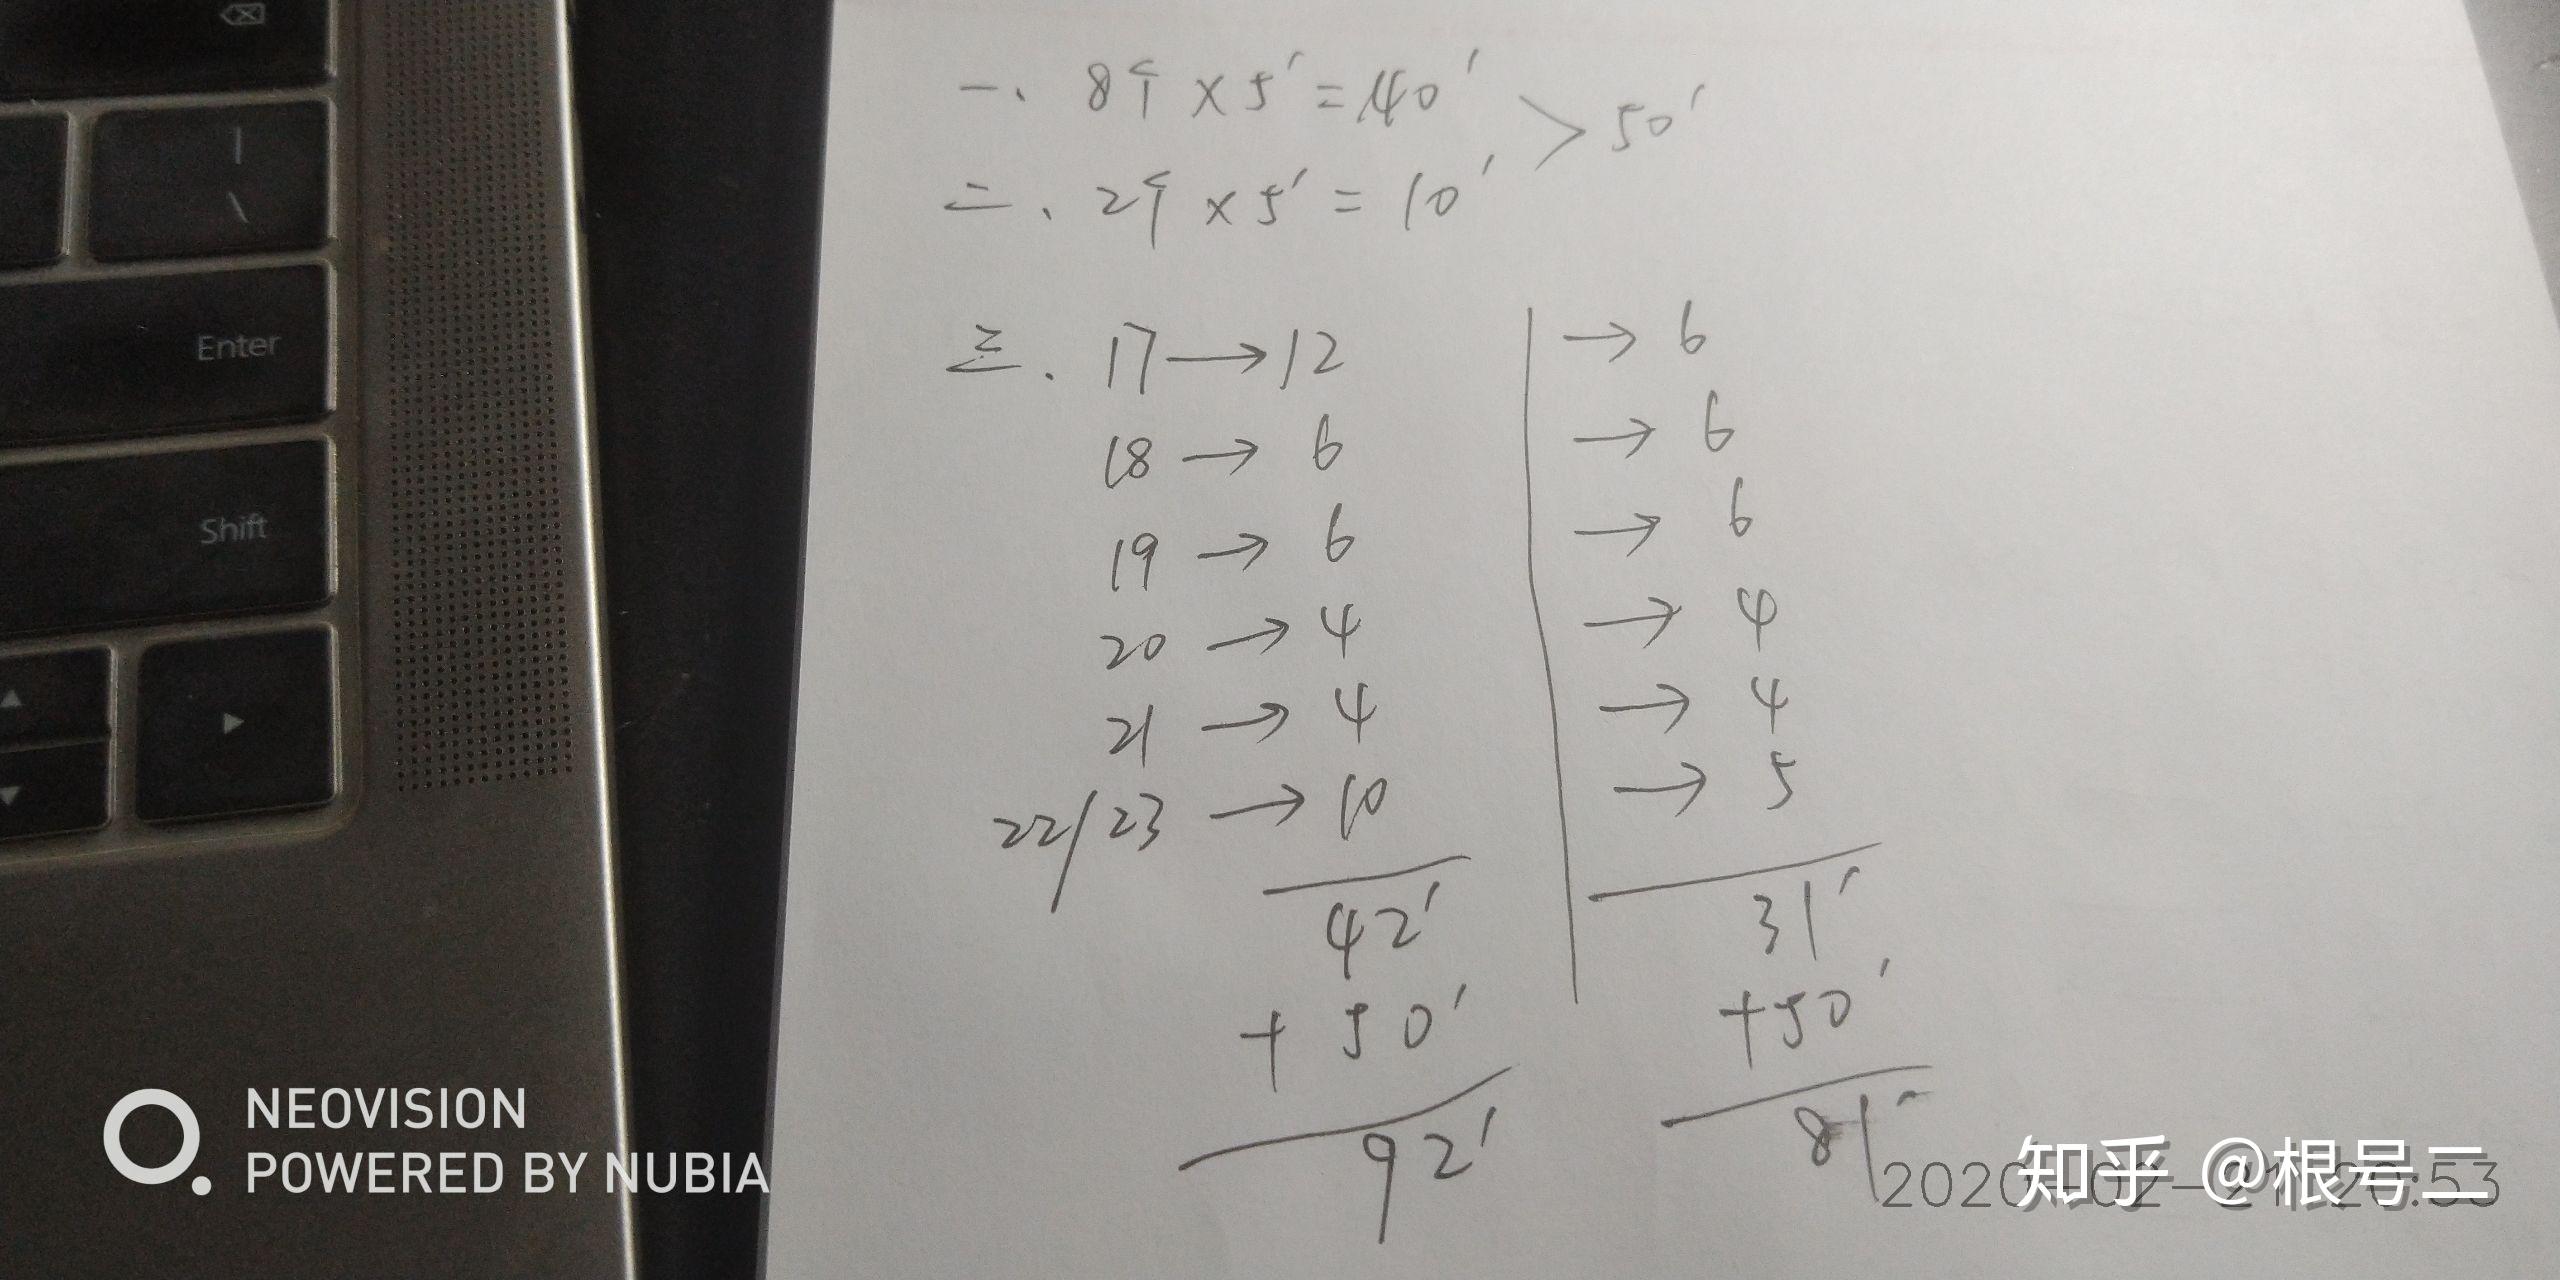 Enter
Shift
一、8个×5′=40′
>50′
二、2个×5′=10′
三.17→12
18→6
19→6
20→4
21→4
22/23→10
42′
+50′
92′
→6
→6
→6
→4
→4
→5
31′
+50′
81′
NEOVISION
POWERED BY NUBIA
知乎 @根号二